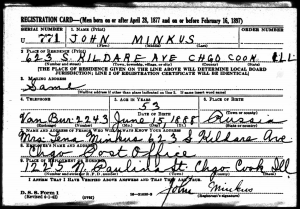 REGISTRATION CARD—(Men born on or after April 28, 1877 and on or before February 16, 1897)
SERIAL NUMBER 1. NAME (Print) ORDER NUMBER
771 JOHN MINKUS
2. PLACE OF RESIDENCE (Print)
623 S. KILDARE AVE CHGO COOK ILL
[THE PLACE OF RESIDENCE GIVEN ON THE LINE ABOVE WILL DETERMINE LOCAL BOARD
JURISDICTION; LINE 2 OF REGISTRATION CERTIFICATE WILL BE IDENTICAL]
3. MAILING ADDRESS
Same
4. TELEPHONE 5. AGE IN YEARS 6. PLACE OF BIRTH
53
Van Bur. 2243 June 15 1888 Russia
7. NAME AND ADDRESS OF PERSON WHO WILL ALWAYS KNOW YOUR ADDRESS
Mrs. 623 S Kildare Ave
8. EMPLOYER'S NAME AND ADDRESS
Chgo Post Office
9. PLACE OF EMPLOYMENT OR BUSINESS
N Paulina St Chgo Cook Ill
I AFFIRM THAT I HAVE VERIFIED ABOVE ANSWERS AND THAT THEY ARE TRUE.
D. S. S. Form 1
(Revised 4-1-42)
John Minkus
(Registrant's signature)